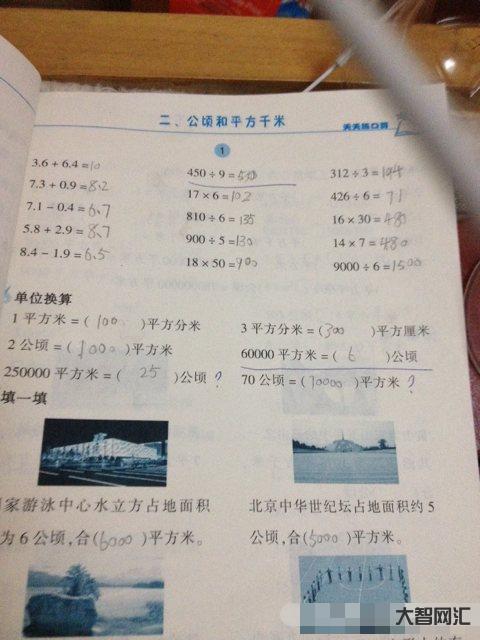 二、公顷和平方千米
天天练口算
1
3.6 + 6.4 = 10
450 ÷ 9 = 550
312 ÷ 3 =
7.3 + 0.9 = 8.2
17 × 6 = 102
426 ÷ 6 = 71
7.1 - 0.4 = 6.7
810 ÷ 6 = 135
16 × 30 = 480
5.8 + 2.9 = 8.7
900 ÷ 5 = 130
14 × 7 = 480
8.4 - 1.9 = 6.5
18 × 50 = 900
9000 ÷ 6 = 1500
单位换算
1 平方米 = ( 100 )平方分米
3 平方分米 = (300 )平方厘米
2 公顷 = ( 1000 )平方米
60000 平方米 = ( 6 )公顷
250000 平方米 = ( 25 )公顷 ?
70 公顷 = ( 70000 )平方米 ?
填一填
家游泳中心水立方占地面积
为 6 公顷,合(6000 )平方米。
北京中华世纪坛占地面积约 5
公顷,合(5000 )平方米。
大智网汇